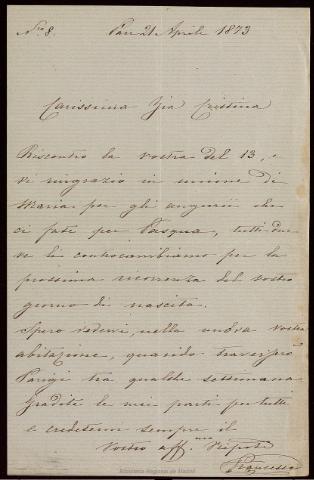 N.o 8. Pau 21 Aprile 1873
Carissima Zia Cristina
Riscontro la vostra del 13, e
vi ringrazio in unione di
Maria per gli augurii che
ci fate per Pasqua, tutti due
ve li contracambiamo per la
prossima ricorrenza del vostro
giorno di nascita.
Spero vedervi, nella nuova vostra
abitazione, quando traverserò
Parigi tra qualche settimana
Gradite le mie parti per tutti
e credetemi sempre il
Vostro aff.mo Nipote
Francesco
Biblioteca Regional de Madrid